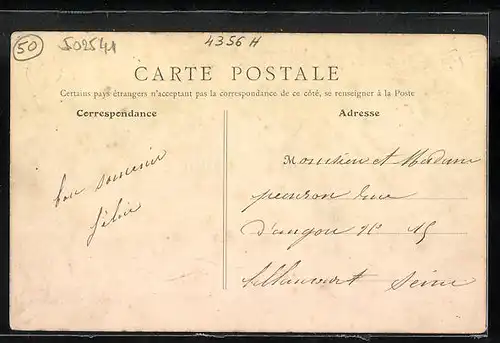 50
502541
4356 H
CARTE POSTALE
Certains pays étrangers n'acceptant pas la correspondance de ce côté, se renseigner à la Poste
Correspondance
Adresse
bon souvenir
félicie
Monsieur et Madame
rue
d'anjou N° 15
billancourt Seine